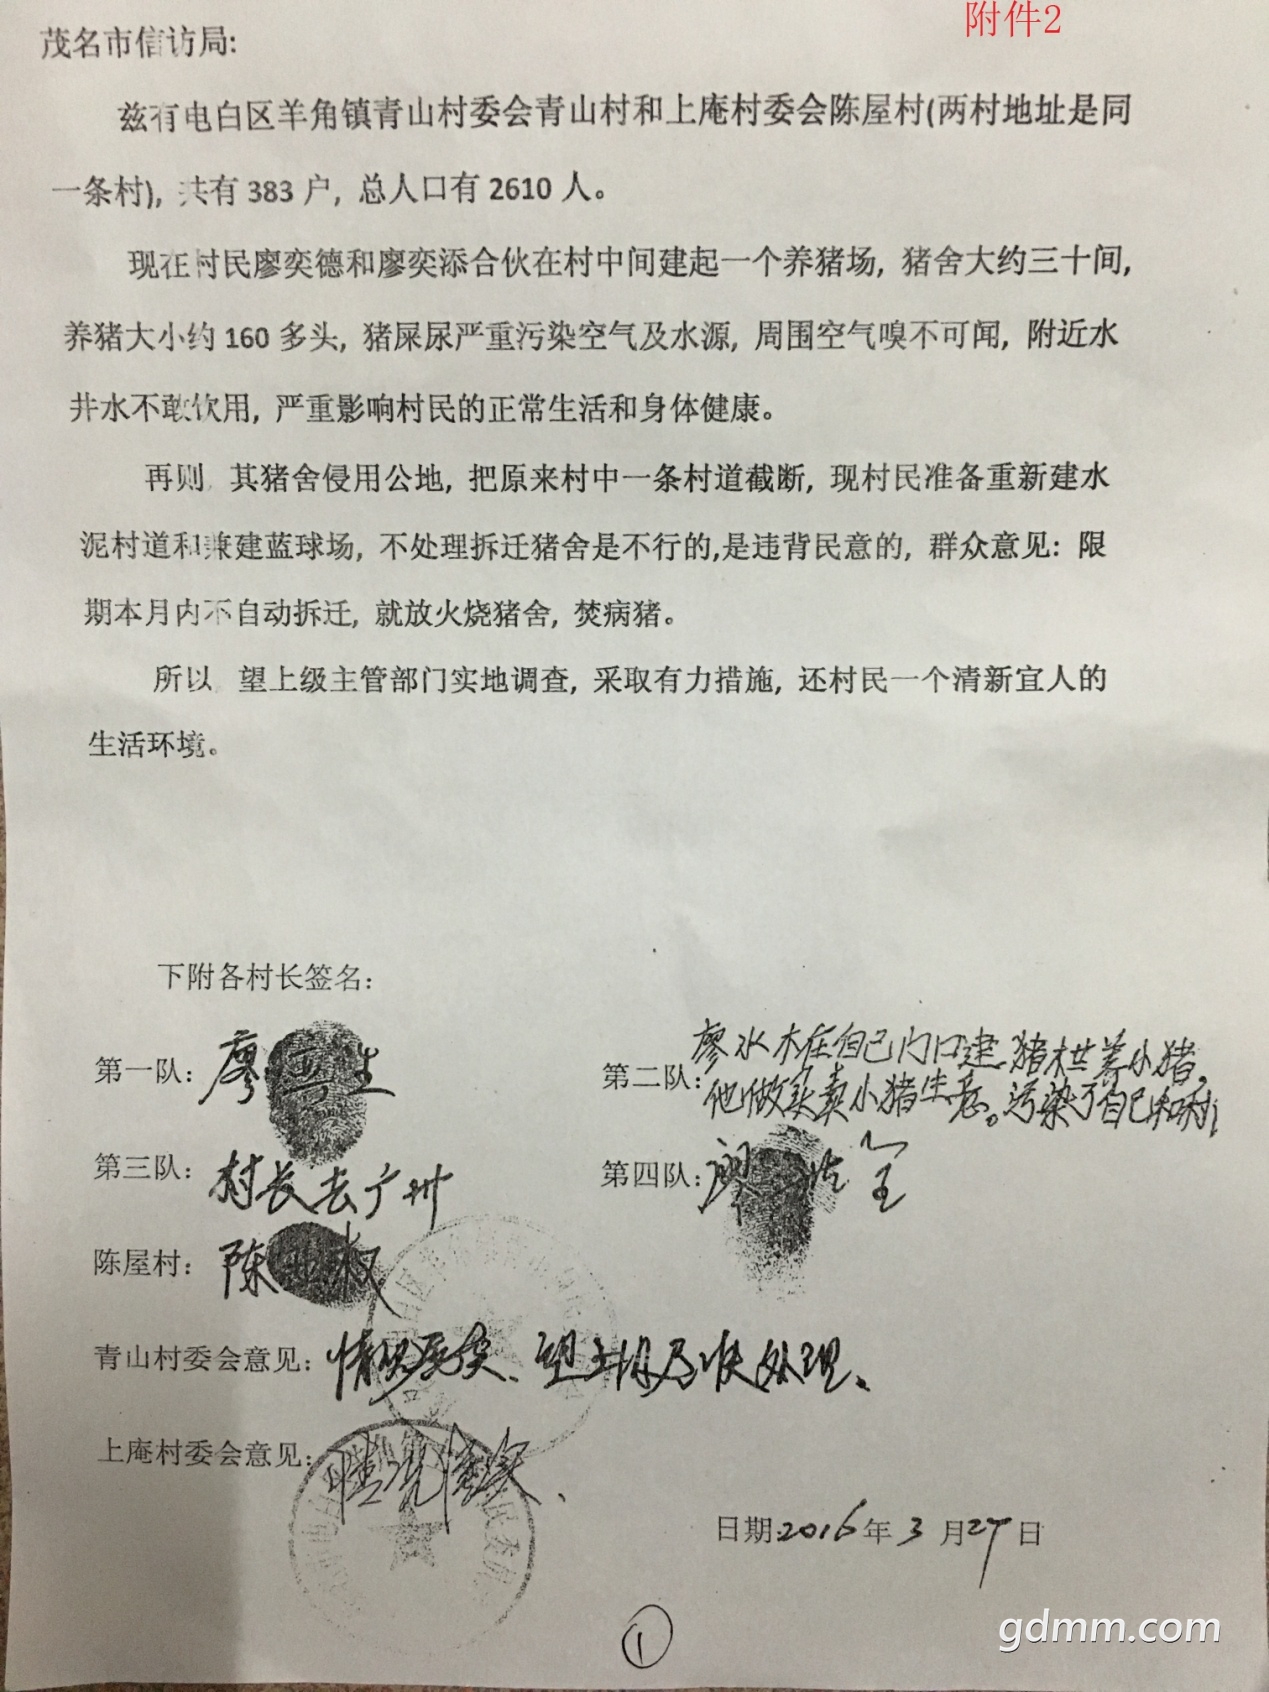 附件2
茂名市信访局:
兹有电白区羊角镇青山村委会青山村和上庵村委会陈屋村(两村地址是同
一条村), 共有 383 户, 总人口有 2610 人。
现在村民廖奕德和廖奕添合伙在村中间建起一个养猪场, 猪舍大约三十间,
养猪大小约 160 多头, 猪屎尿严重污染空气及水源, 周围空气嗅不可闻, 附近水
井水不敢饮用, 严重影响村民的正常生活和身体健康。
再则, 其猪舍侵用公地, 把原来村中一条村道截断, 现村民准备重新建水
泥村道和兼建蓝球场, 不处理拆迁猪舍是不行的,是违背民意的, 群众意见: 限
期本月内不自动拆迁, 就放火烧猪舍, 焚病猪。
所以 望上级主管部门实地调查, 采取有力措施, 还村民一个清新宜人的
生活环境。
下附各村长签名:
第一队: 廖 生
第二队: 廖水木在自己门口建猪栏养小猪,
他做买卖小猪生意。污染了自己
第三队: 村长去广州
第四队: 廖 全
陈屋村: 陈
青山村委会意见: 情况属实、望上级尽快处理、
上庵村委会意见: 情况属实、
日期:2016年3月27日
1
gdmm.com